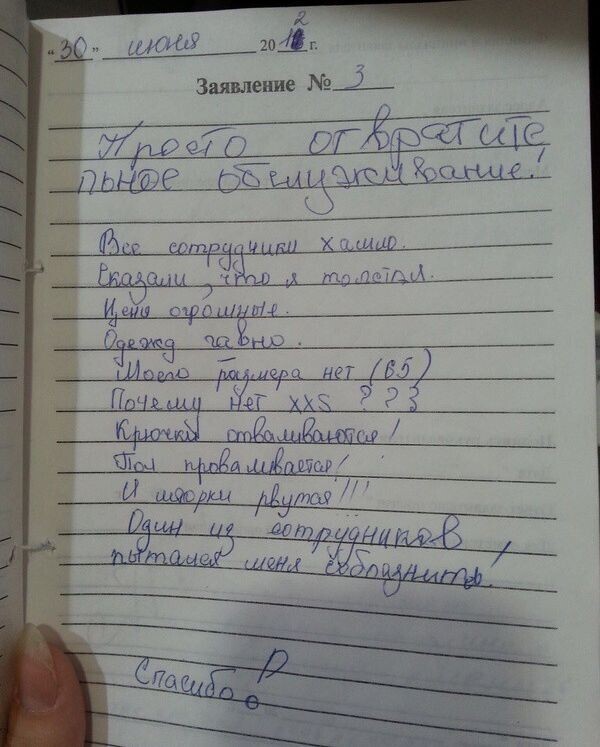 "30" июня 2012 г.
Заявление № 3
Просто отвратите
льное обслуживание!
Все сотрудники хамло.
Сказали, что я толстая.
Цены огромные.
Одежд гавно.
Моего размера нет (65)
Почему нет XXS ???
Крючки отваливаются!
Пол проваливается!
И шторки рвутся!!!
Один из сотрудников
пытался меня соблазнить!
Спасибо!